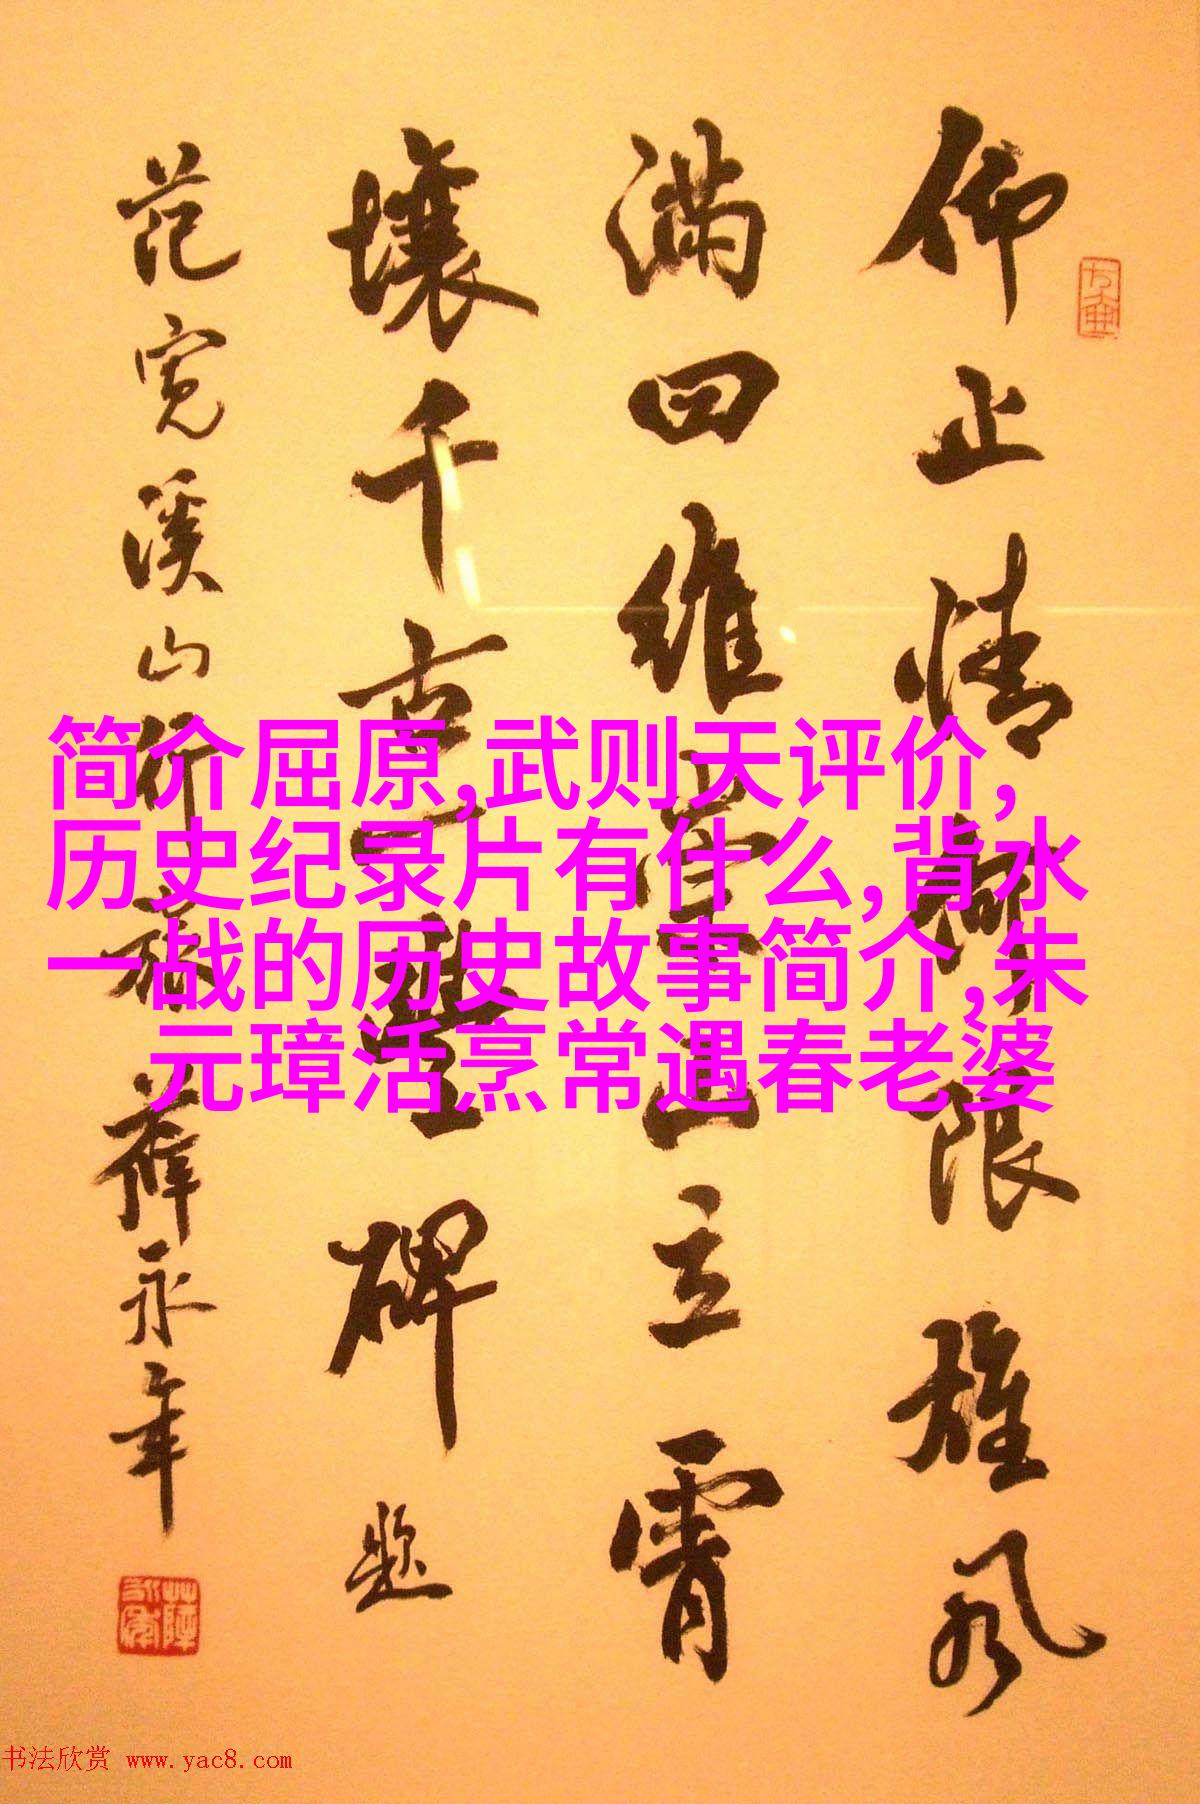 仰止情限雄风
满四維崇山立霄
壤千古一豐碑
题
范寬溪山行旅 薛永年
简介屈原,武则天评价,
历史纪录片有什么,背水
一战的历史故事简介,朱
元璋活烹常遇春老婆
书法欣赏 www.yac8.com